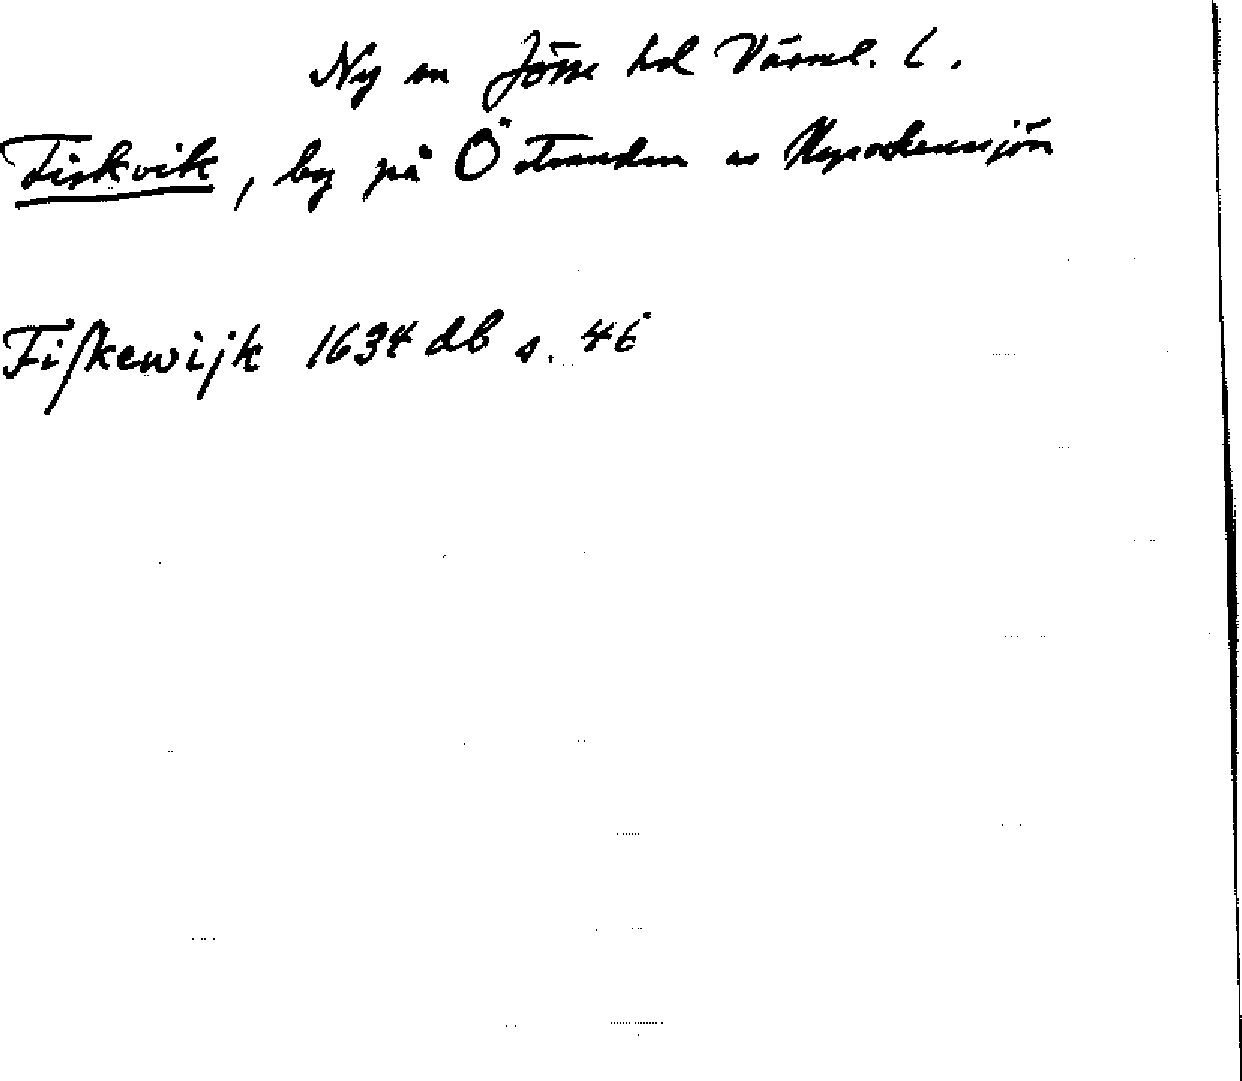 Ny sn Jösse hd Värml. l.
Fiskvik, by på Ö stranden av
Fiskewijk 1634 db s. 46